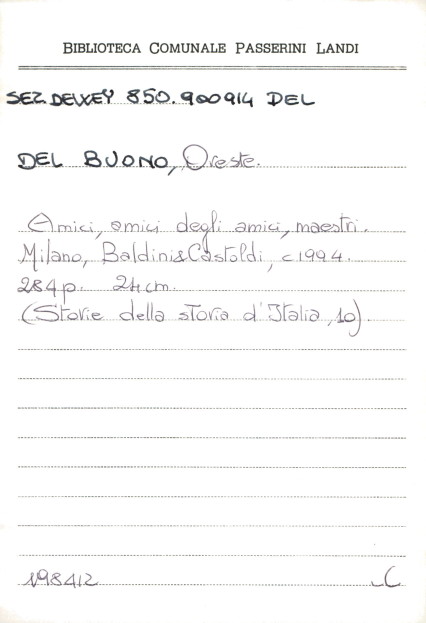 BIBLIOTECA COMUNALE PASSERINI LANDI
SEZ. DEWEY 850.900914 DEL
DEL BUONO, Oreste.
Amici, amici degli amici, maestri.
Milano, Baldini&Castoldi, c1994.
284 p. 24 cm.
(Storie della storia d'Italia, 10).
198412